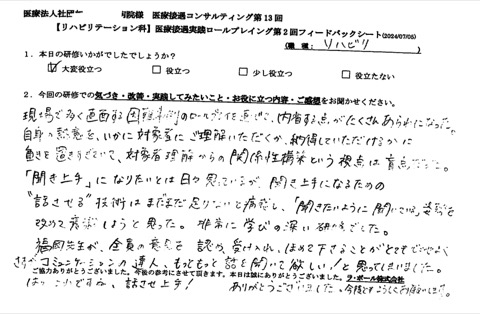 医療法人社団 病院様 医療接遇コンサルティング第13回
【リハビリテーション科】医療接遇実践ロールプレイング第2回フィードバックシート(2024/07/05)
(職種: リハビリ )
1. 本日の研修いかがでしたでしょうか？
☑ 大変役立つ □ 役立つ □ 少し役立つ □ 役立たない
2. 今回の研修での気づき・改善・実践してみたいこと・お役に立つ内容・ご感想をお聞かせください。
現場で多く直面する困難事例のロールプレイを通じて、内省する点がたくさんあらわになった。
自身の熱意を、いかに対象者にご理解いただくか、納得していただけるかに
重きを置きすぎていて、対象者理解からの関係性構築という視点は盲点だった。
「聞き上手」になりたいとは日々思っているが、聞き上手になるための
"話させる"技術はまだまだ足りないと痛感し、「聞きたいように聞いている」姿勢を
改めて意識しようと思った。非常に学びの深い研修でした。
福岡先生が、全員の意見を認め、受け入れ、ほめて下さることがとても
さすがコミュニケーションの達人、もっともっと話を聞いて欲しい！と思ってしまいました。
ご協力ありがとうございました。今後の参考にさせて頂きます。本日は誠にありがとうございました。ラ・ポール株式会社
話させ上手！ ありがとうございました。今後ともよろしくお願いします。